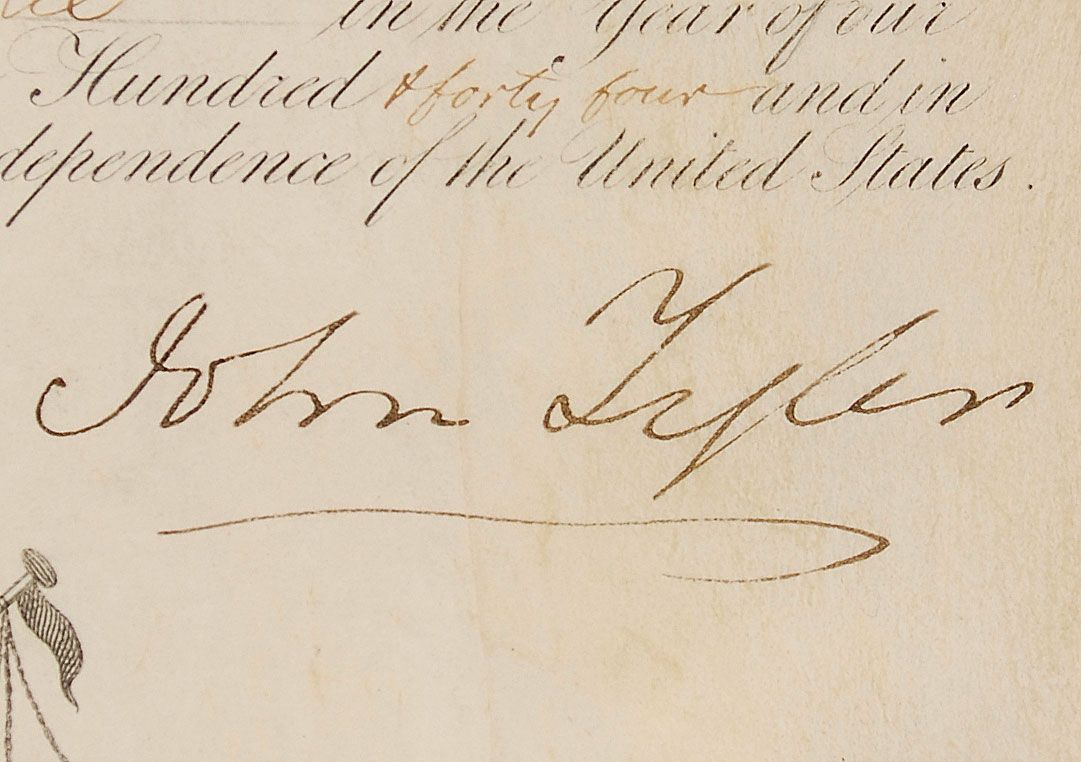 in the Year of our
Hundred & forty four and in
dependence of the United States.
John Tyler